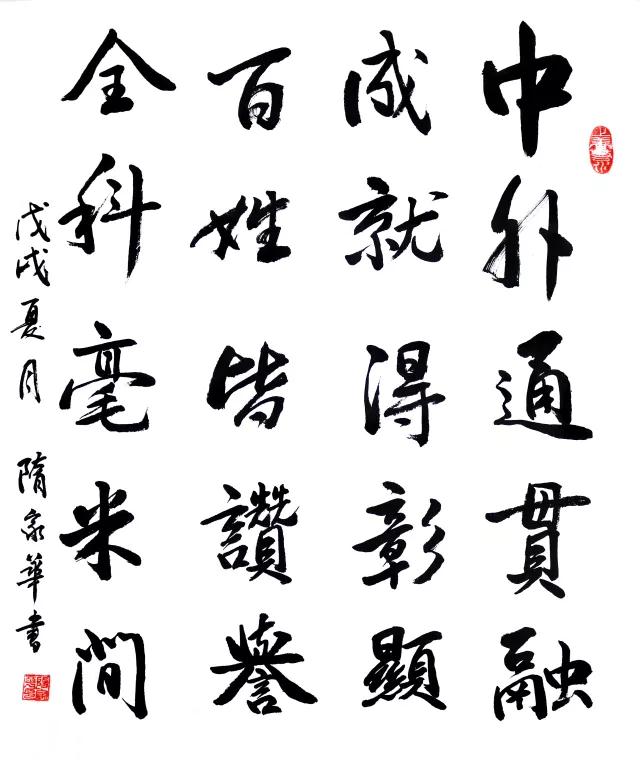 中外通貫融
成就得彰顯
百姓皆讚譽
全科毫米間
戊戌夏月 隋家華書